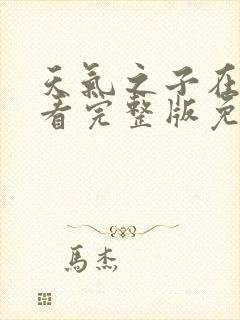 天氣之子在
看完整版免
馬杰